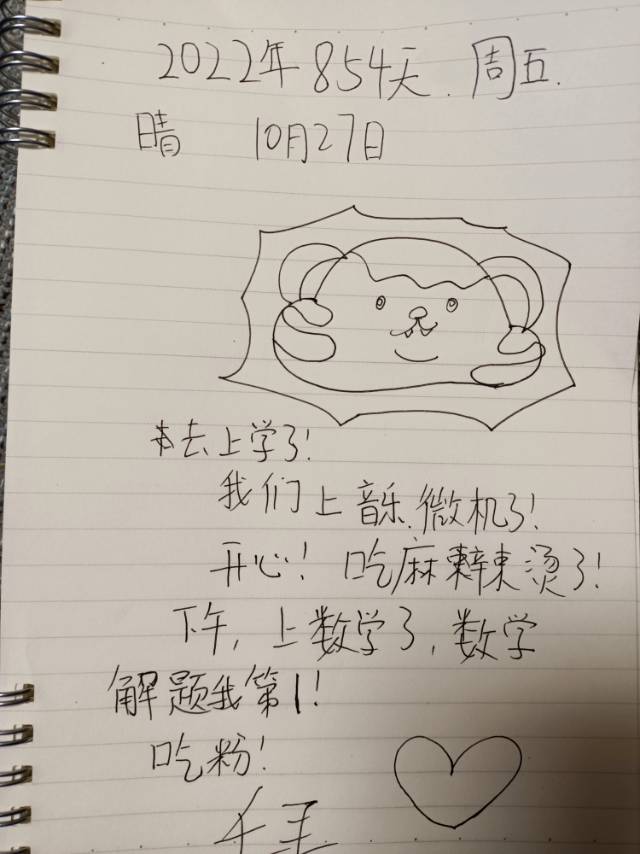 2022年854天.周五.
晴 10月27日
去上学了!
我们上音乐.微机了!
开心!吃麻辣烫了!
下午,上数学了,数学
解题我第1!
吃粉!